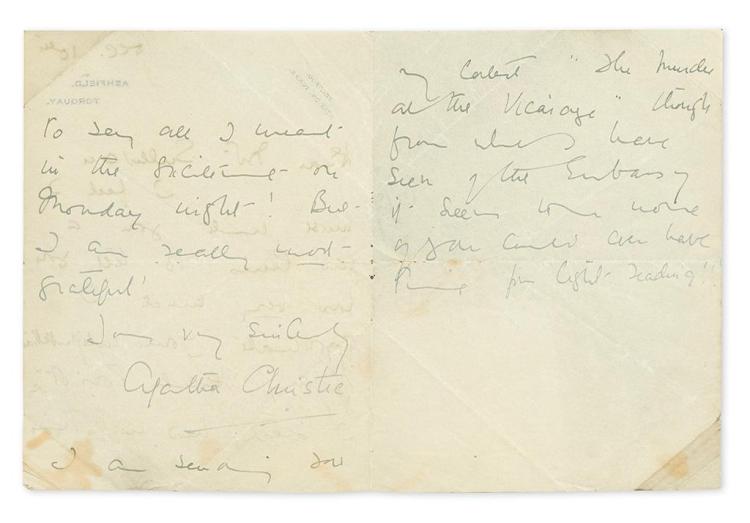 ASHFIELD.
TORQUAY.
to say all I meant
in the excitement on
Monday night! But
I am really most
grateful!
Yours very sincerely
Agatha Christie
I am sending you
my latest "The Murder
at the Vicarage" though
from what I have
seen of the Embassy
it seems to me none
of you could ever have
time for light reading!!